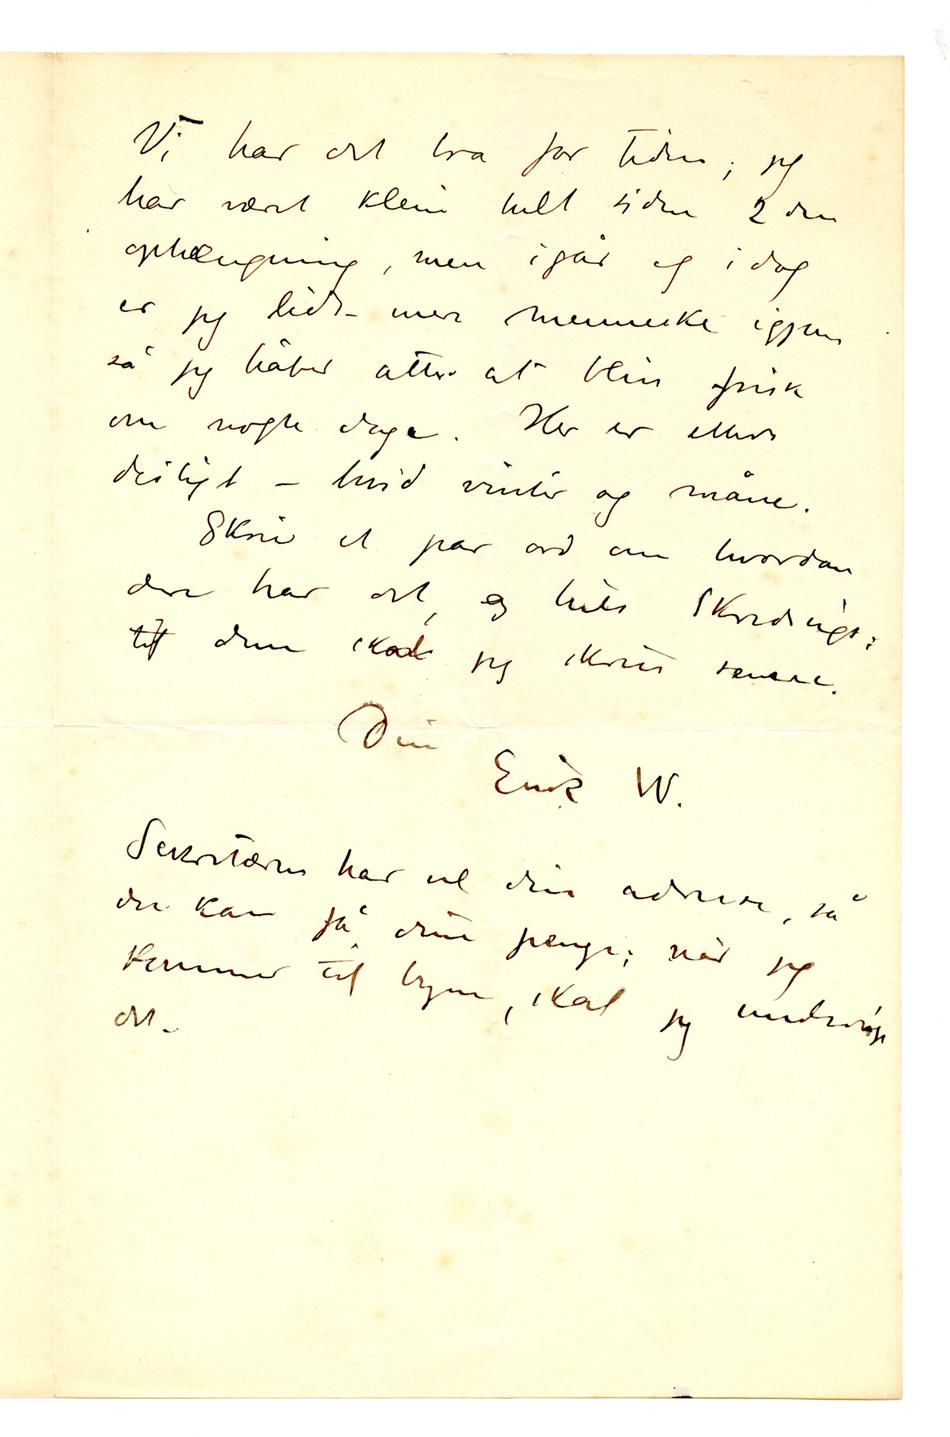 Vi har det bra for tiden; jeg
har været klein helt siden 2den
ophængning, men igår og idag
er jeg lidt mere menneske igjen
så jeg håber atter at bli frisk
om nogle dage. Her er ellers
deiligt – hvid vinter og måne.
Skriv et par ord om hvordan
dere har det, og hils Skredsvigs;
til dem skal jeg skrive senere.
Din
Erik W.
Sekretæren har vel din adresse, så
du kan få dine penge; når jeg
kommer til byen, skal jeg undersøge
det.